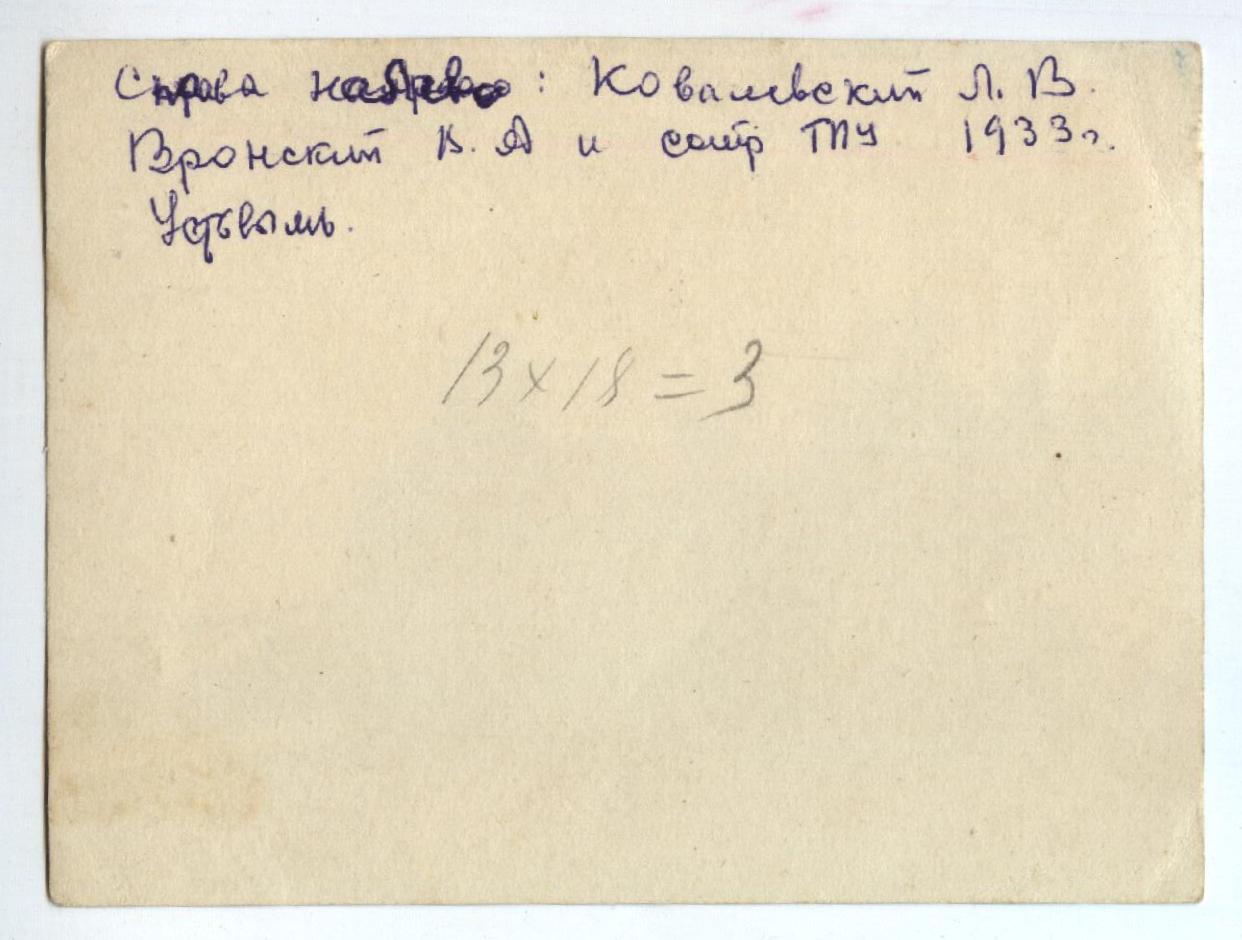 Справа налево: Ковалевский Л. В.
Вронский В. А и сотр ТПУ 1933г.
Устьвымь.
13 x 18 = 3